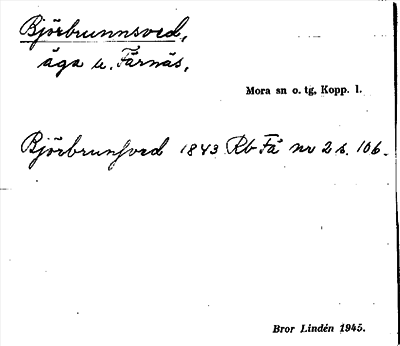 Björbrunnsved,
äga u. Färnäs,
Mora sn o. tg, Kopp. l.
Björbrunsved 1843 Rb Få nr 2 s. 106.
Bror Lindén 1945.